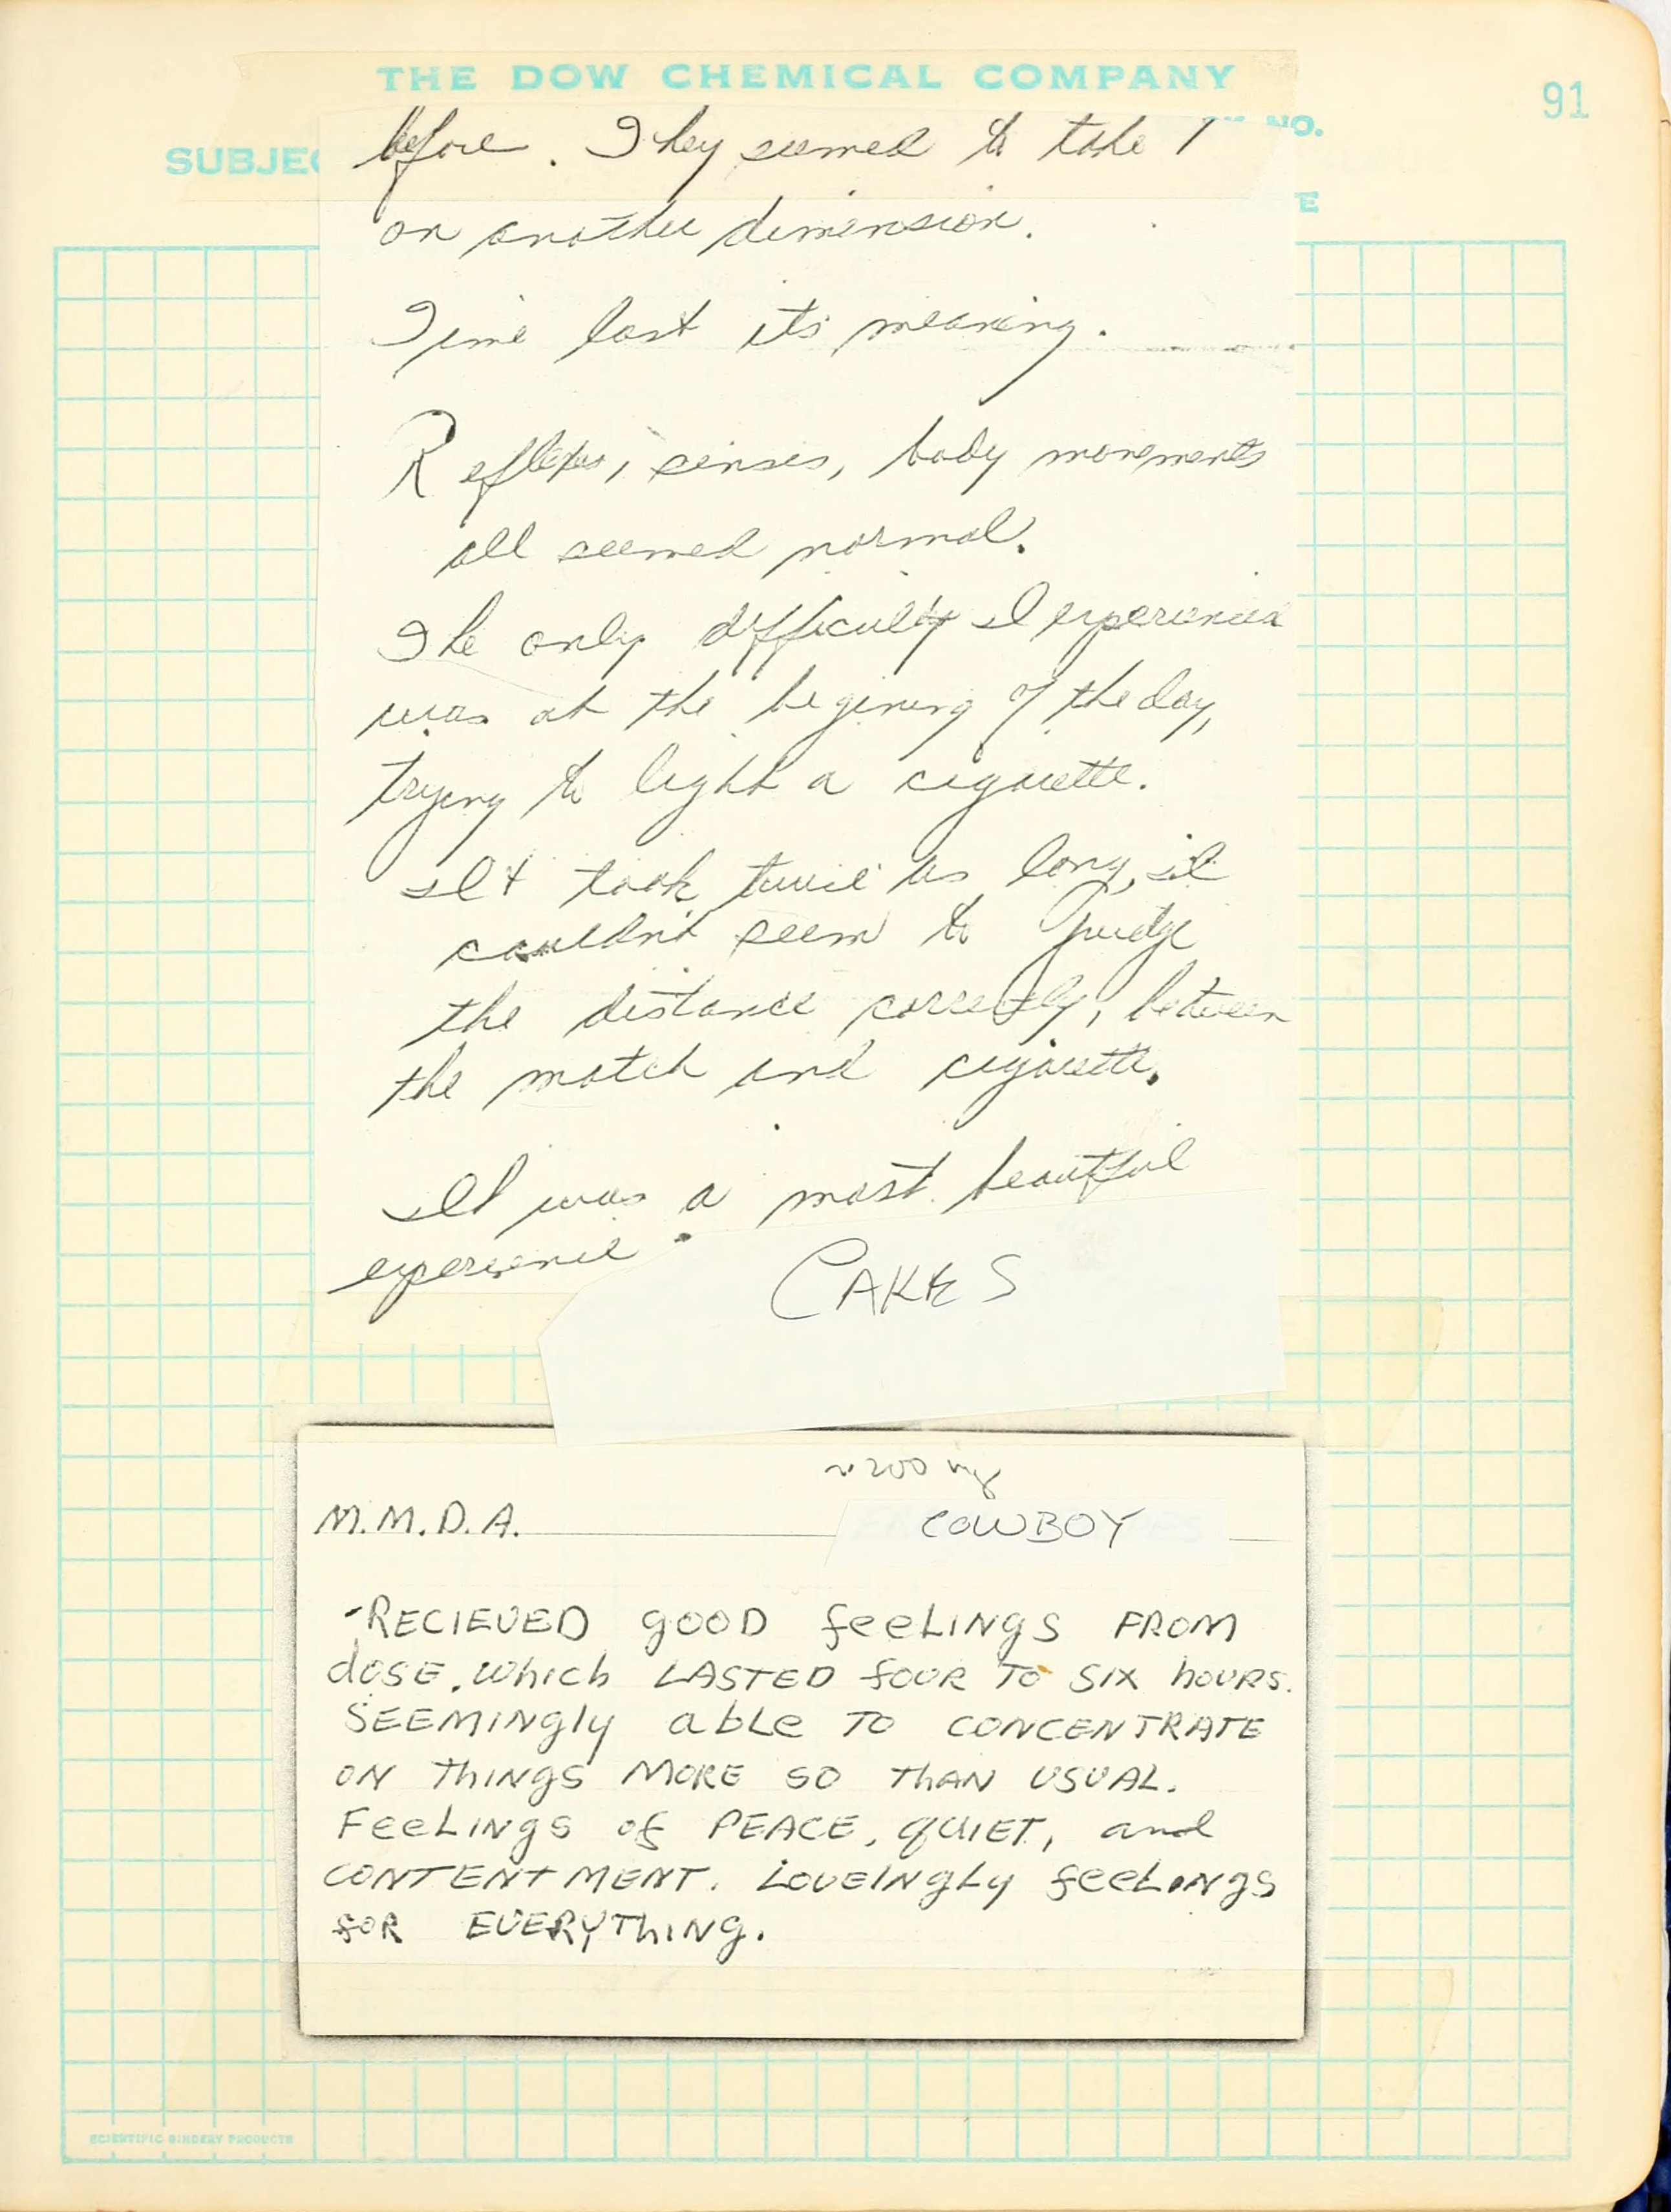 THE DOW CHEMICAL COMPANY
91
SUBJEC
NO.
E
before. They seemed to take
on another dimension.
Time lost its meaning.
Reflexes, senses, body movements
all seemed normal.
The only difficulty I experienced
was at the begining of the day,
trying to light a cigarette.
It took twice as long, I
couldn't seem to Judge
the distance correctly, between
the match and cigarette.
It was a most beautiful
experience.
CAKES
~200 mg
M.M.D.A. COWBOY
-RECIEVED gOOD feeLINgS FROM
dOSE. Which LASTED fOUR TO SIX hOURS.
SEEMINgly abLe TO CONCENTRATE
ON ThINgS MORE SO ThAN USUAL.
FeeLINgS of PEACE, qUIET, and
CONTENTMENT. LOVEINgLy feeLINgS
fOR EVERYThINg.
SCIENTIFIC BINDERY PRODUCTS